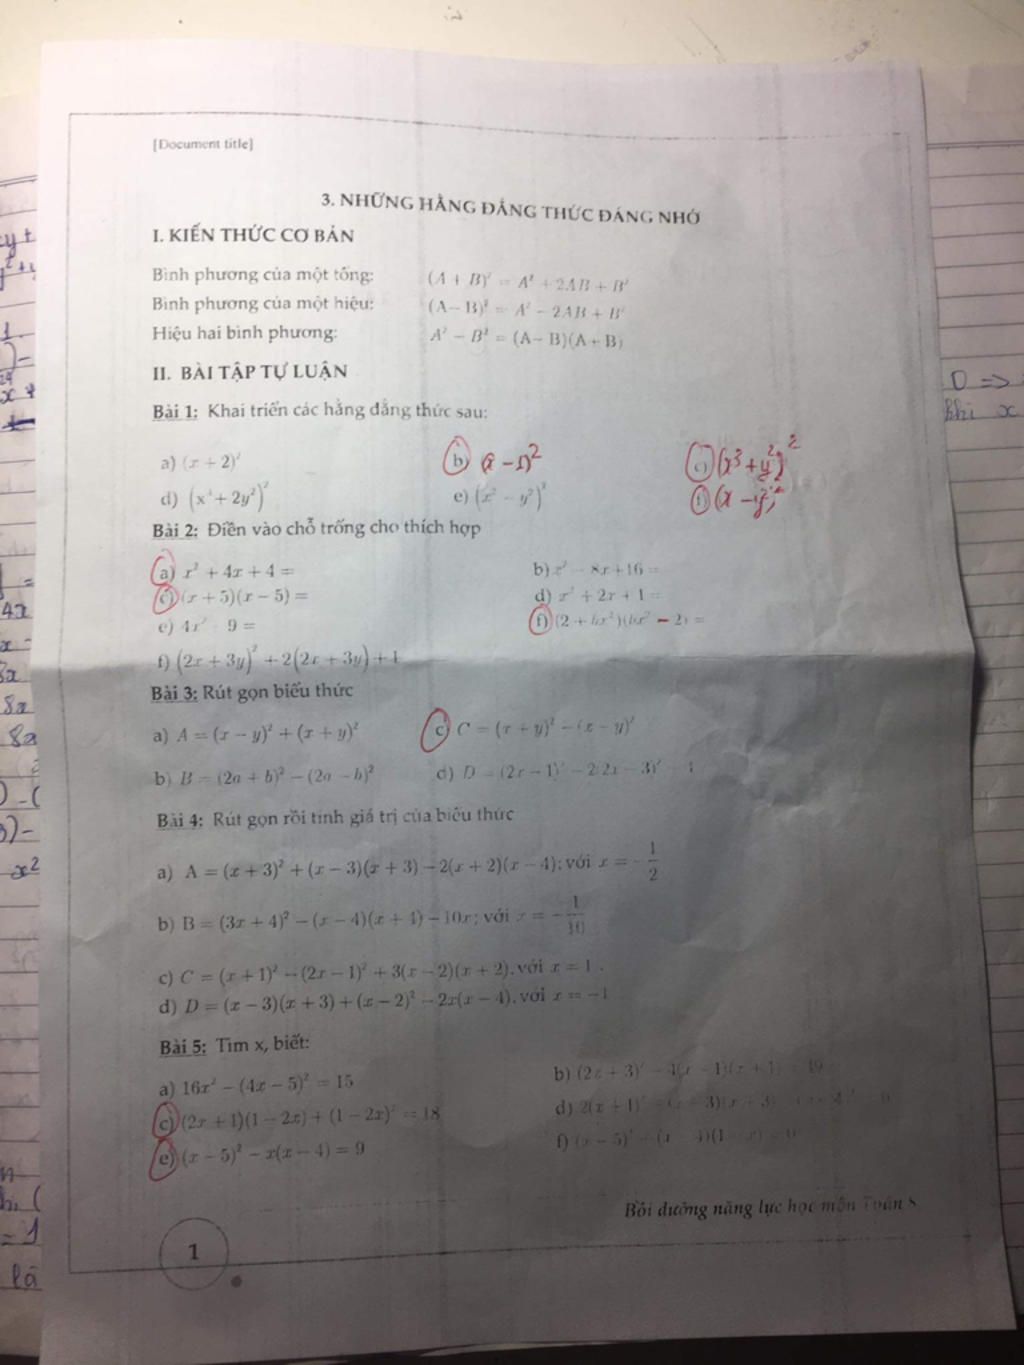 [Document title]
3. NHỮNG HẰNG ĐẲNG THỨC ĐÁNG NHỚ
I. KIẾN THỨC CƠ BẢN
Bình phương của một tổng: (A + B)² = A² + 2AB + B²
Bình phương của một hiệu: (A − B)² = A² − 2AB + B²
Hiệu hai bình phương: A² − B² = (A − B)(A + B)
II. BÀI TẬP TỰ LUẬN
Bài 1: Khai triển các hằng đẳng thức sau:
a) (x + 2)² b) (x − 1)² c) (x³ + y²)²
d) (x² + 2y²)² e) (x² − y²)² f) (x − y²)²
Bài 2: Điền vào chỗ trống cho thích hợp
a) x² + 4x + 4 = b) x² − 8x + 16 =
c) (x + 5)(x − 5) = d) x² + 2x + 1 =
e) 4x² − 9 = f) (2 + bx²)(bx² − 2) =
f) (2x + 3y)² + 2(2x + 3y) + 1
Bài 3: Rút gọn biểu thức
a) A = (x − y)² + (x + y)² c) C = (x + y)² − (x − y)²
b) B = (2a + b)² − (2a − b)² d) D = (2x − 1)² − 2(2x − 3)² + 4
Bài 4: Rút gọn rồi tính giá trị của biểu thức
a) A = (x + 3)² + (x − 3)(x + 3) − 2(x + 2)(x − 4); với x = −1/2
b) B = (3x + 4)² − (x − 4)(x + 4) − 10x; với x = −1/10
c) C = (x + 1)² − (2x − 1)² + 3(x − 2)(x + 2), với x = 1.
d) D = (x − 3)(x + 3) + (x − 2)² − 2x(x − 4), với x = −1
Bài 5: Tìm x, biết:
a) 16x² − (4x − 5)² = 15 b) (2x + 3)² − 4(x − 1)(x + 1) = 49
c) (2x + 1)(1 − 2x) + (1 − 2x)² = 18 d) 2(x + 1)² − (x − 3)(x + 3)
e) (x − 5)² − x(x − 4) = 9 f) (x − 5)²
Bồi dưỡng năng lực học môn Toán 8
1